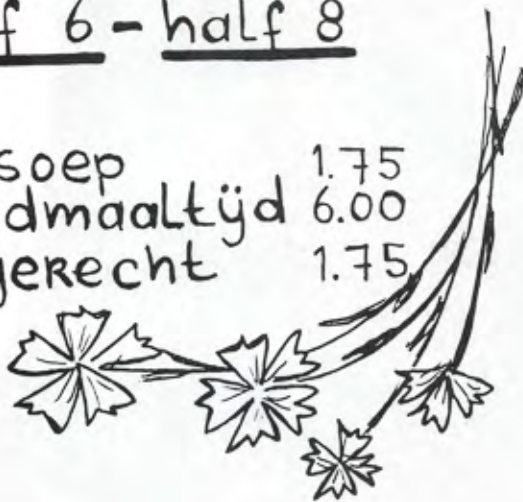 f 6 - half 8
soep 1.75
dmaaltijd 6.00
gerecht 1.75